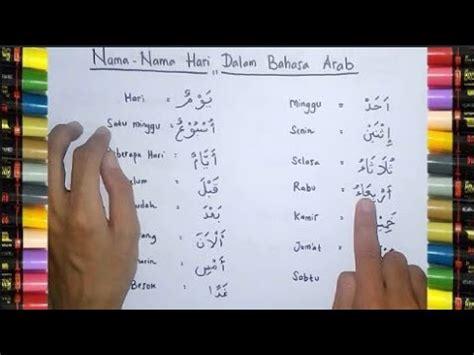 Nama - Nama Hari Dalam Bahasa Arab
Hari = يَوْمٌ
Satu minggu = أُسْبُوْعٌ
Hari = أَيَّامٌ
= قَبْلَ
= بَعْدَ
= اَلْآنَ
= أَمْسِ
Besok = غَدًا
Minggu = اَحَدْ
Senin = إِثْنَيْن
Selasa = ثُلَاثَاءُ
Rabu = أَرْبِعَاءُ
Kamis =
Jum'at =
Sabtu =